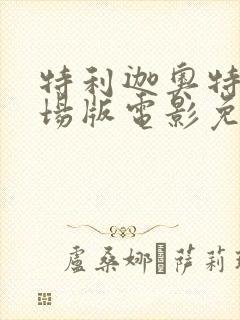 特利迦奥特
場版電影免
盧桑娜 萨莉